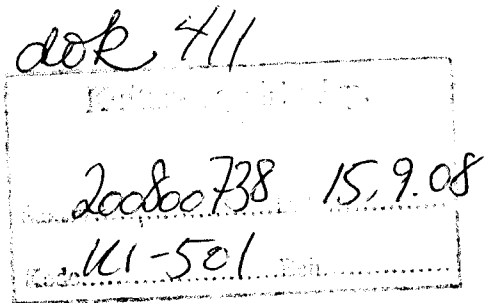 dok 411
200800738 15.9.08
K1-501